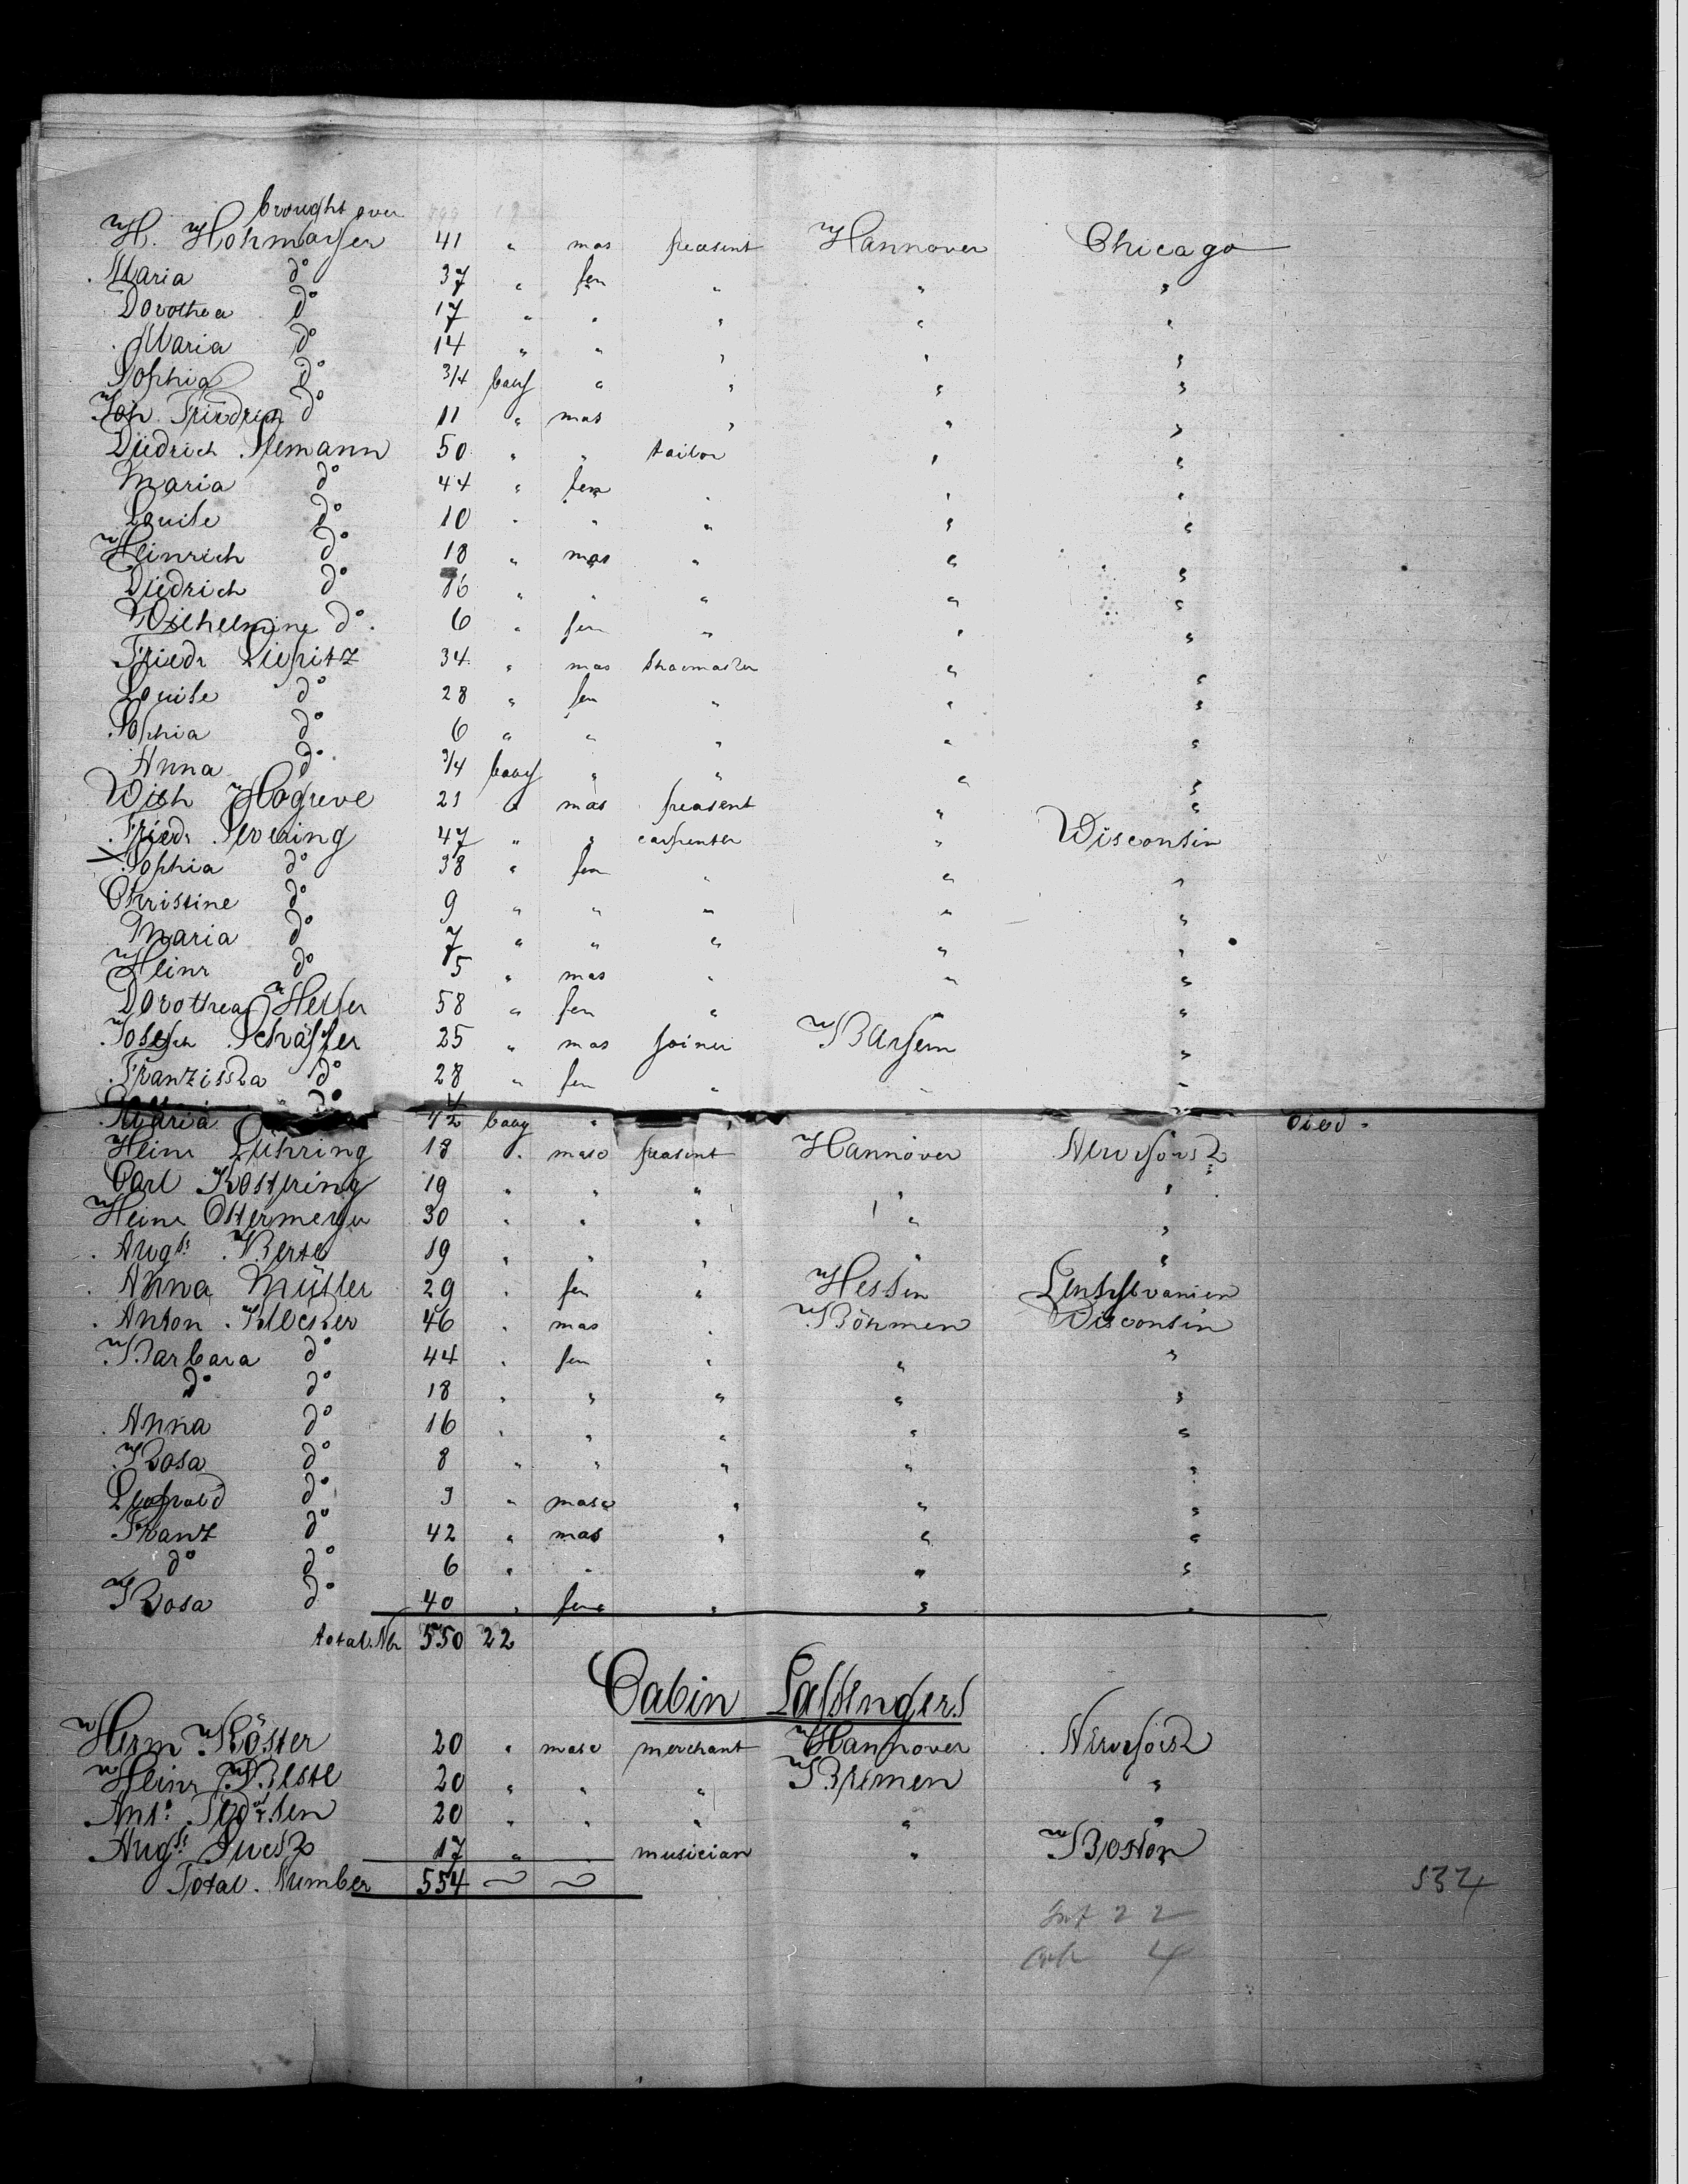 brought over
H. Hohmayer 41 " mas peasent Hannover Chicago
Maria do 37 " fem " " "
Dorothea do 17 " " " " "
Maria do 14 " " " " "
Sophia do 3/4 baby " " " "
Joh Friedrich do 11 " mas " " "
Diedrich Semann 50 " " tailor " "
Maria do 44 " fem " " "
Louise do 10 " " " " "
Heinrich do 18 " mas " " "
Diedrich do 16 " " " " "
Wilhelmine do. 6 " fem " " "
Friedr 34 " mas shoemaker " "
Louise do 28 " fem " " "
Sophia do 6 " " " " "
Anna do. 3/4 baby " " " "
Wilh Hogreve 21 " mas peasent " "
Friedr 47 " " carpenter " Wisconsin
Sophia do 38 " fem " " "
Christine do 9 " " " " "
Maria do 7 " " " " "
Heinr do 5 " mas " " "
Dorothea 58 " fem " " "
Joseph Schäffer 25 " mas joiner Bayern "
Franziska do 28 " fem " " "
Maria do baby " " " died.
Heinr Lühring 18 " masc peasent Hannover Newyork
Carl 19 " " " " "
Heinr Ostermeyer 30 " " " " "
Augst. 19 " " " " "
Anna Müller 29 " fem " Hessen Pensylvanien
Anton Klecker 46 " mas " Böhmen Wisconsin
Barbara do 44 " fem " " "
do do 18 " " " " "
Anna do 16 " " " " "
Rosa do 8 " " " " "
Leopold do 3 " masc " " "
Franz do 42 " mas " " "
do do 6 " " " "
Rosa do 40 " fem " " "
total Nbr 550 22
Cabin Passengers
Herm Köster 20 " masc merchant Hannover Newyork
Heinr 20 " " " Bremen "
20 " " " " "
Augst. 17 " " musician " Boston
Total Number 554
534
22
4